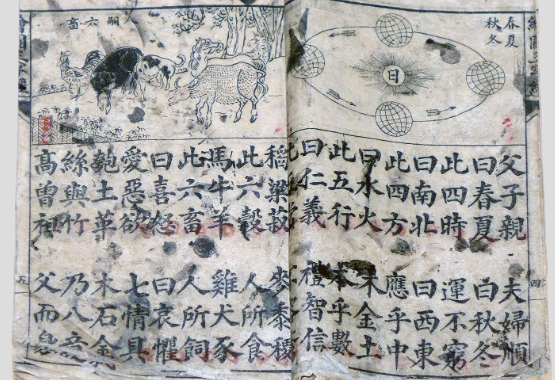 春夏
秋冬
日
父子親 夫婦順
曰春夏 曰秋冬
此四時 運不窮
曰南北 曰西東
此四方 應乎中
曰水火 木金土
此五行 本乎數
曰仁義 禮智信
四
六畜
稻粱菽 麥黍稷
此六穀 人所食
馬牛羊 雞犬豕
此六畜 人所飼
曰喜怒 曰哀懼
愛惡欲 七情具
匏土革 木石金
絲與竹 乃八音
高曾祖 父而身
五